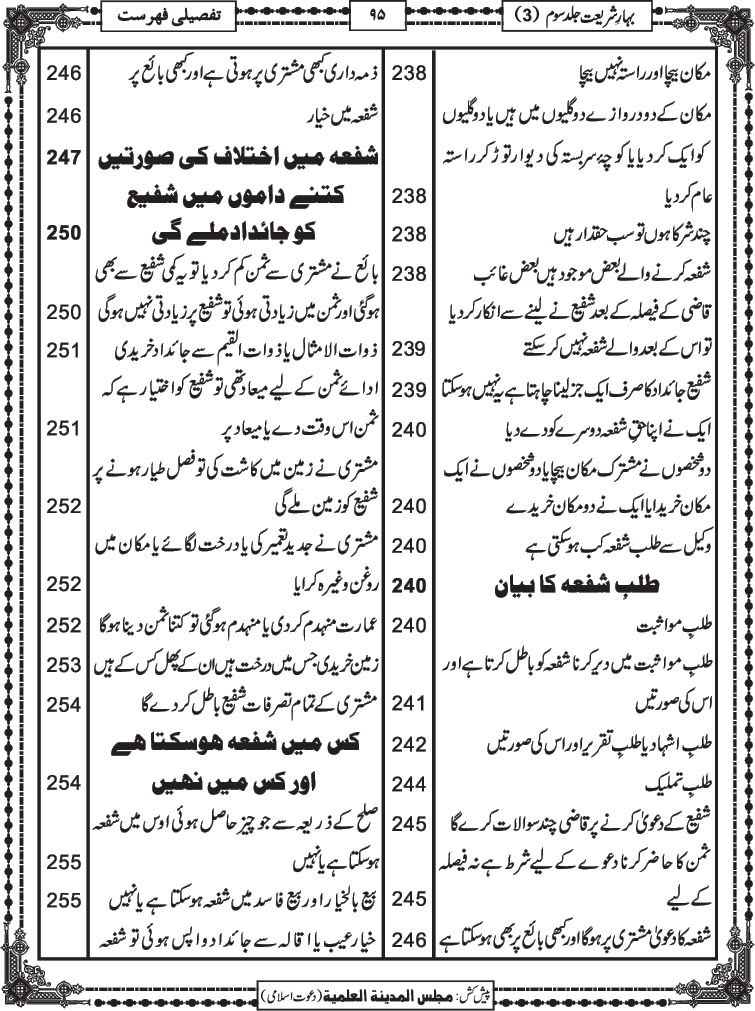 بہارِ شریعت جلد سوم (3)
۹۵
تفصیلی فہرست
مکان بیچا اور راستہ نہیں بیچا 238
مکان کے دو دروازے دو گلیوں میں ہیں یا دو گلیوں
کو ایک کر دیا یا کوچۂ سربستہ کی دیوار توڑ کر راستہ
عام کر دیا 238
چند شرکا ہوں تو سب حقدار ہیں 238
شفعہ کرنے والے بعض موجود ہیں بعض غائب 238
قاضی کے فیصلہ کے بعد شفیع نے لینے سے انکار کر دیا
تو اس کے بعد والے شفعہ نہیں کر سکتے 239
شفیع جائداد کا صرف ایک جز لینا چاہتا ہے یہ نہیں ہوسکتا 239
ایک نے اپنا حقِ شفعہ دوسرے کو دے دیا 240
دو شخصوں نے مشترک مکان بیچا یا دو شخصوں نے ایک
مکان خریدا یا ایک نے دو مکان خریدے 240
وکیل سے طلب شفعہ کب ہوسکتی ہے 240
طلبِ شفعہ کا بیان 240
طلبِ مواثبت 240
طلبِ مواثبت میں دیر کرنا شفعہ کو باطل کرتا ہے اور
اس کی صورتیں 241
طلبِ اشہاد یا طلبِ تقریر اور اس کی صورتیں 242
طلبِ تملیک 244
شفیع کے دعویٰ کرنے پر قاضی چند سوالات کرے گا 245
ثمن کا حاضر کرنا دعوے کے لیے شرط ہے نہ فیصلہ
کے لیے 245
شفعہ کا دعویٰ مشتری پر ہوگا اور کبھی بائع پر بھی ہوسکتا ہے 246
ذمہ داری کبھی مشتری پر ہوتی ہے اور کبھی بائع پر 246
شفعہ میں خیار 246
شفعہ میں اختلاف کی صورتیں 247
کتنے داموں میں شفیع
کو جائداد ملے گی 250
بائع نے مشتری سے ثمن کم کر دیا تو یہ کمی شفیع سے بھی
ہوگئی اور ثمن میں زیادتی ہوئی تو شفیع پر زیادتی نہیں ہوگی 250
ذوات الامثال یا ذوات القیم سے جائداد خریدی 251
ادائے ثمن کے لیے میعاد تھی تو شفیع کو اختیار ہے کہ
ثمن اس وقت دے یا میعاد پر 251
مشتری نے زمین میں کاشت کی تو فصل طیار ہونے پر
شفیع کو زمین ملے گی 252
مشتری نے جدید تعمیر کی یا درخت لگائے یا مکان میں
روغن وغیرہ کرایا 252
عمارت منہدم کردی یا منہدم ہوگئی تو کتنا ثمن دینا ہوگا 252
زمین خریدی جس میں درخت ہیں ان کے پھل کس کے ہیں 253
مشتری کے تمام تصرفات شفیع باطل کر دے گا 254
کس میں شفعہ ہوسکتا ہے
اور کس میں نہیں 254
صلح کے ذریعہ سے جو چیز حاصل ہوئی اوس میں شفعہ
ہوسکتا ہے یا نہیں 255
بیع بالخیار اور بیع فاسد میں شفعہ ہوسکتا ہے یا نہیں 255
خیار عیب یا اقالہ سے جائداد واپس ہوئی تو شفعہ
پیش کش: مجلس المدینة العلمیة (دعوت اسلامی)